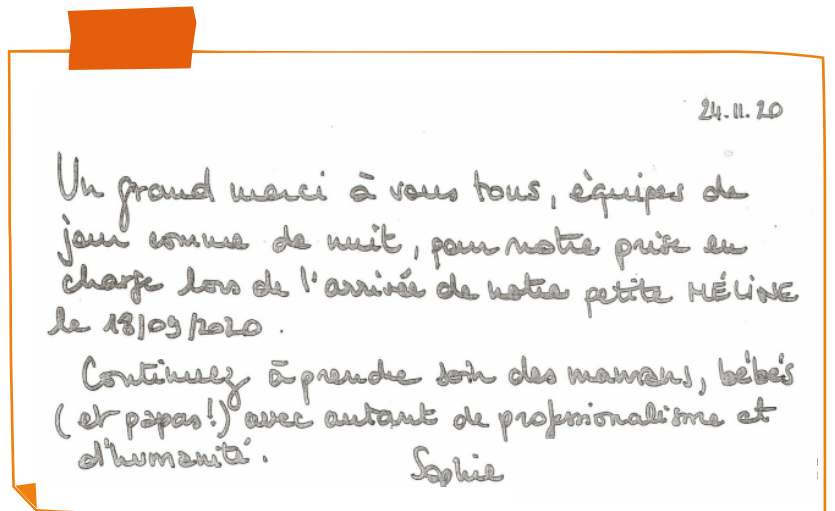 24.11.20
Un grand merci à vous tous, équipes de
jour comme de nuit, pour notre prise en
charge lors de l'arrivée de notre petite MÉLINE
le 18/09/2020.
Continuez à prendre soin des mamans, bébés
(et papas!) avec autant de professionnalisme et
d'humanité.
Sophie